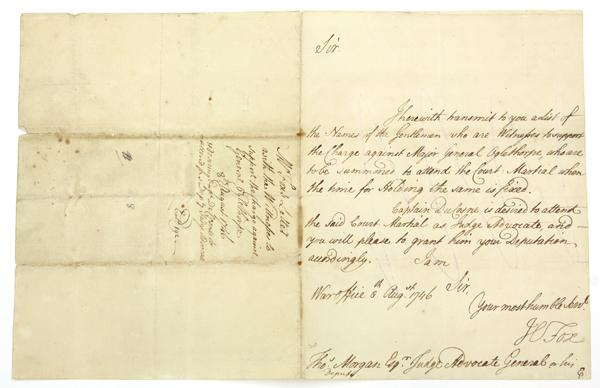 Sir
I herewith transmit to you a List of
the Names of the Gentlemen who are Witnesses to support
the Charge against Major General Oglethorpe, who are
to be summoned to attend the Court Martial when
the time for Holding the same is fixed.
Captain DuCasne is desired to attend
the said Court Martial as Judge Advocate, and
you will please to grant him your Deputation
accordingly. I am
Sir
War Office 8th Augst 1746
Your most humble Servt.
H Fox
Thos. Morgan Esqr. Judge Advocate General or his
Deputy
Mr. Fox's Letter
with the Witnesses to
support the charge against
General Oglethorpe
8th August 1746